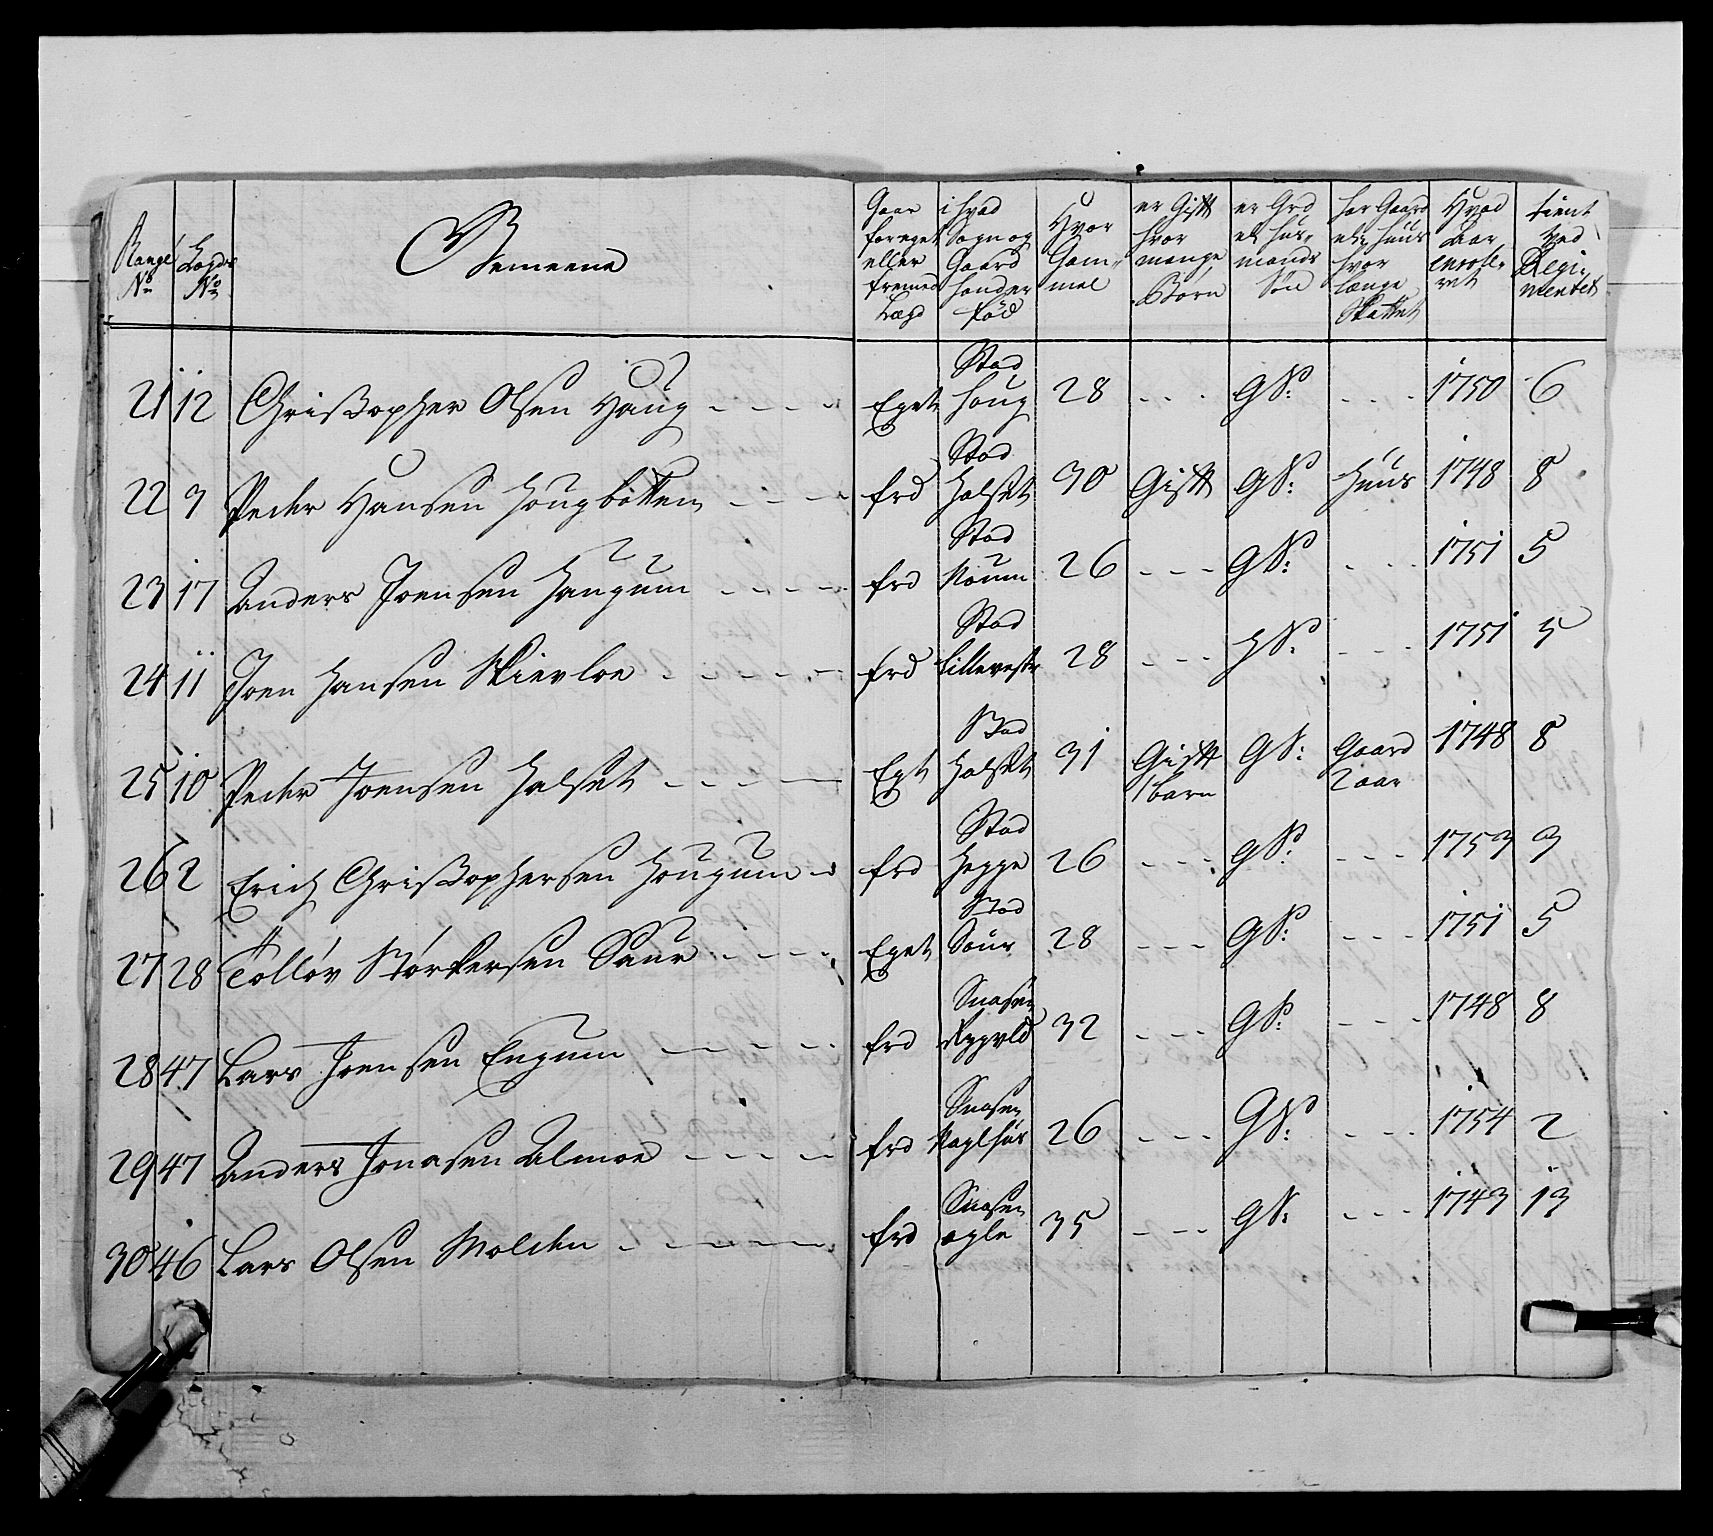 Range No
Lægds No
Gemeene
Gaar for eget eller fremed Lægd
i hvad Sogn og Gaard hand er fød
Hvor Gammel
er Gift hvor mange Børn
er Grd el. hus-mands Søn
har Gaard el. huus hvor længe Skattet
Hvad Aar enrolleret
tient ved Regimentet
21 12 Christopher Olsen Haug - - - - Eget Stod Houg 28 - - - GS: - - - 1750 6
22 9 Peder Hansen Hougbotten - - - frd Stod Halset 30 Gift GS: Huus 1748 8
23 17 Anders Joensen Haugum - - - - frd Stod Noum 26 - - - GS: - - - 1751 5
24 11 Joen Hansen Skievloe - - - - - frd Stod Lillevestr 28 - - - HS: - - - 1751 5
25 10 Peder Joensen Halset - - - - Egt Stod Halset 31 Gift 1 barn GS: Gaard 2 aar 1748 8
26 2 Erich Christophersen Hougum - frd Stod Hegge 26 - - - GS: - - - 1753 3
27 28 Tolløv Størkersen Saur - - - - Eget Stod Sour 28 - - - GS: - - - 1751 5
28 47 Lars Joensen Engum - - - - frd Snasen 32 - - - GS: - - - 1748 8
29 47 Anders Jonasen Almoe - - - - frd Snasen 26 - - - GS: - - - 1754 2
30 46 Lars Olsen Molden - - - - - frd Snasen agle 35 - - - GS: - - - 1743 13